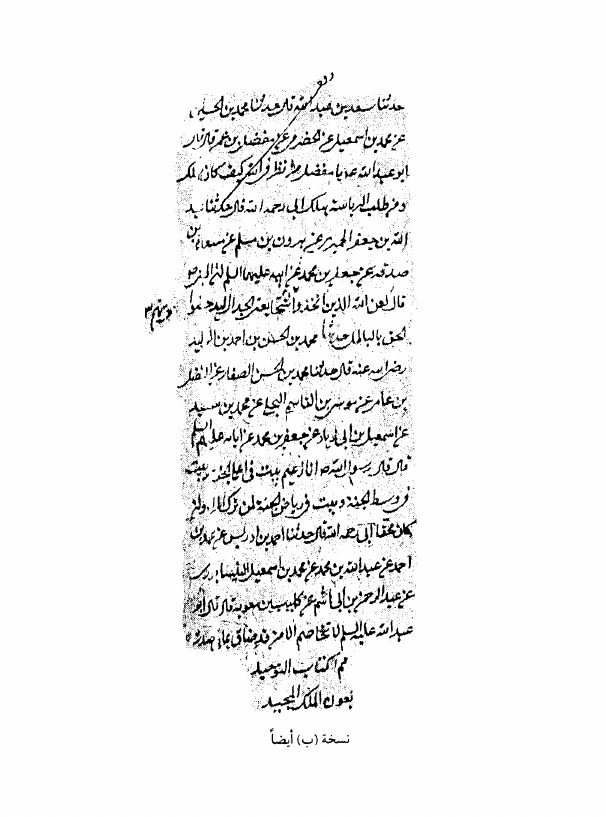 حدثنا سعد بن عبد الله قال حدثنا محمد بن الحسين
عن محمد بن اسمعيل عن الحضرمي عن مفضل بن عمر قال قال
ابو عبد الله ع يا مفضل من نظر في الله كيف كان هلك
ومن طلب الرياسة هلك ابى رحمه الله قال حدثنا عبد
الله بن جعفر الحميرى عن هرون بن مسلم عن مسعدة بن
صدقه عن جعفر بن محمد عن ابيه عليهما السلم
قال لعن الله الذين اتخذوا
الحق بالباطل حدثنا محمد بن الحسن بن احمد بن الوليد
رضى الله عنه قال حدثنا محمد بن الحسن الصفار عن الفضل
بن عامر عن موسى بن القاسم البجلى عن محمد بن سعيد
عن اسمعيل بن ابى زياد عن جعفر بن محمد عن ابائه عليهم السلم
قال قال رسول الله ص انا زعيم ببيت فى اعلى الجنة وبيت
فى وسط الجنة وبيت فى رياض الجنة لمن ترك المراء ولو
كان محقا ابى رحمه الله قال حدثنا احمد بن ادريس عن محمد بن
احمد عن عبد الله بن محمد عن محمد بن اسمعيل النيسابورى
عن عبد الرحمن بن ابى هاشم عن كليب بن معوية قال قال ابو
عبد الله عليه السلم لا يخاصم الا من قد ضاق بما فى صدره
تم كتاب التوحيد
بعون الملك المجيد
نسخة (ب) أيضاً